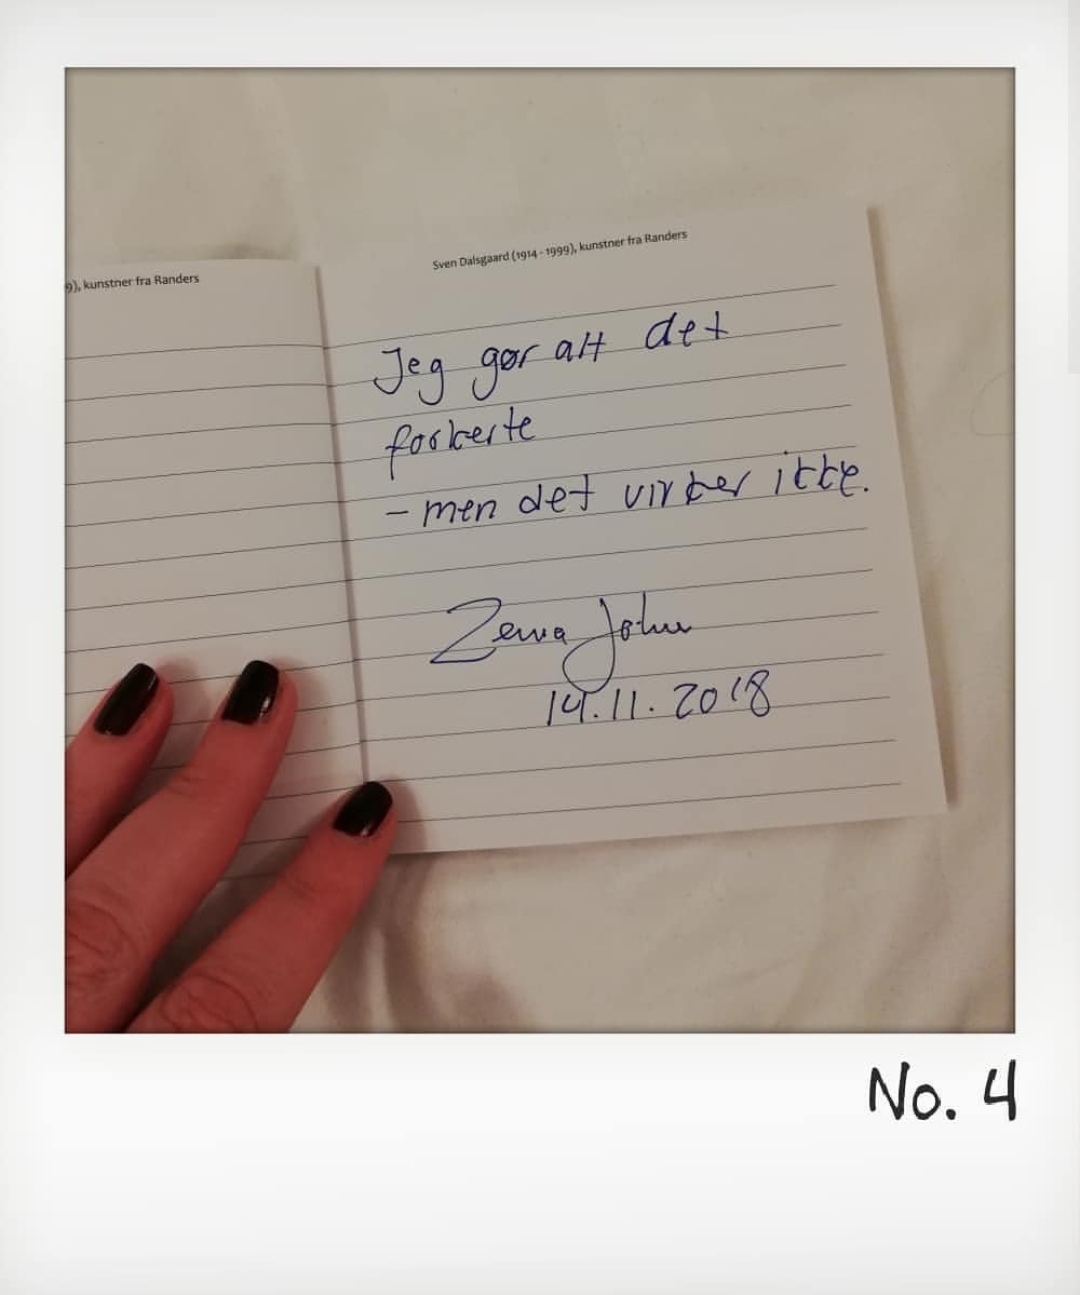 9), kunstner fra Randers
Sven Dalsgaard (1914 - 1999), kunstner fra Randers
Jeg gør alt det
forkerte
- men det virker ikke.
Zenia Johnsen
14.11.2018
No. 4